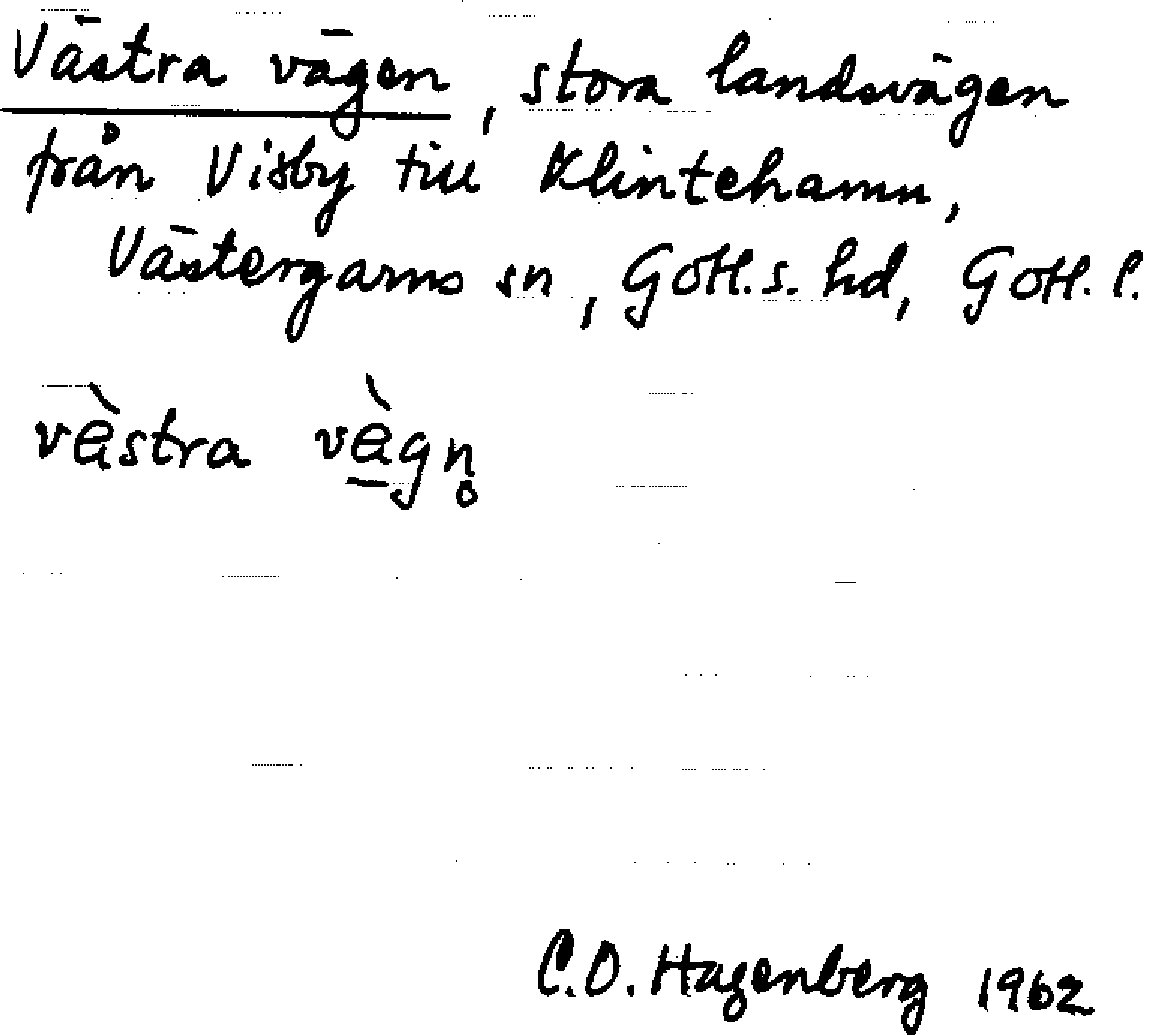 Västra vägen, stora landsvägen
från Visby till Klintehamn,
Västergarns sn, Gotl.s. hd, Gotl. l.
vàstra vàgn̥
C.O. Hagenberg 1962